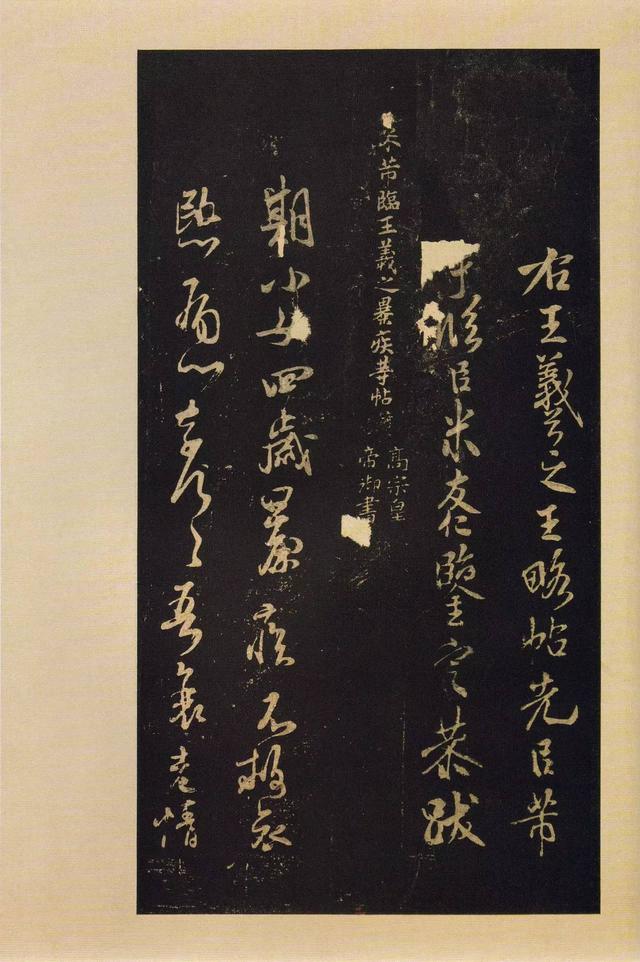 右王羲之王略帖先臣芾
臨臣米友仁鑒定恭跋
米芾臨王羲之暴疾等帖
高宗皇
帝御書
期小女四歲暴疾不救哀
愍痛心奈何々吾衰老情